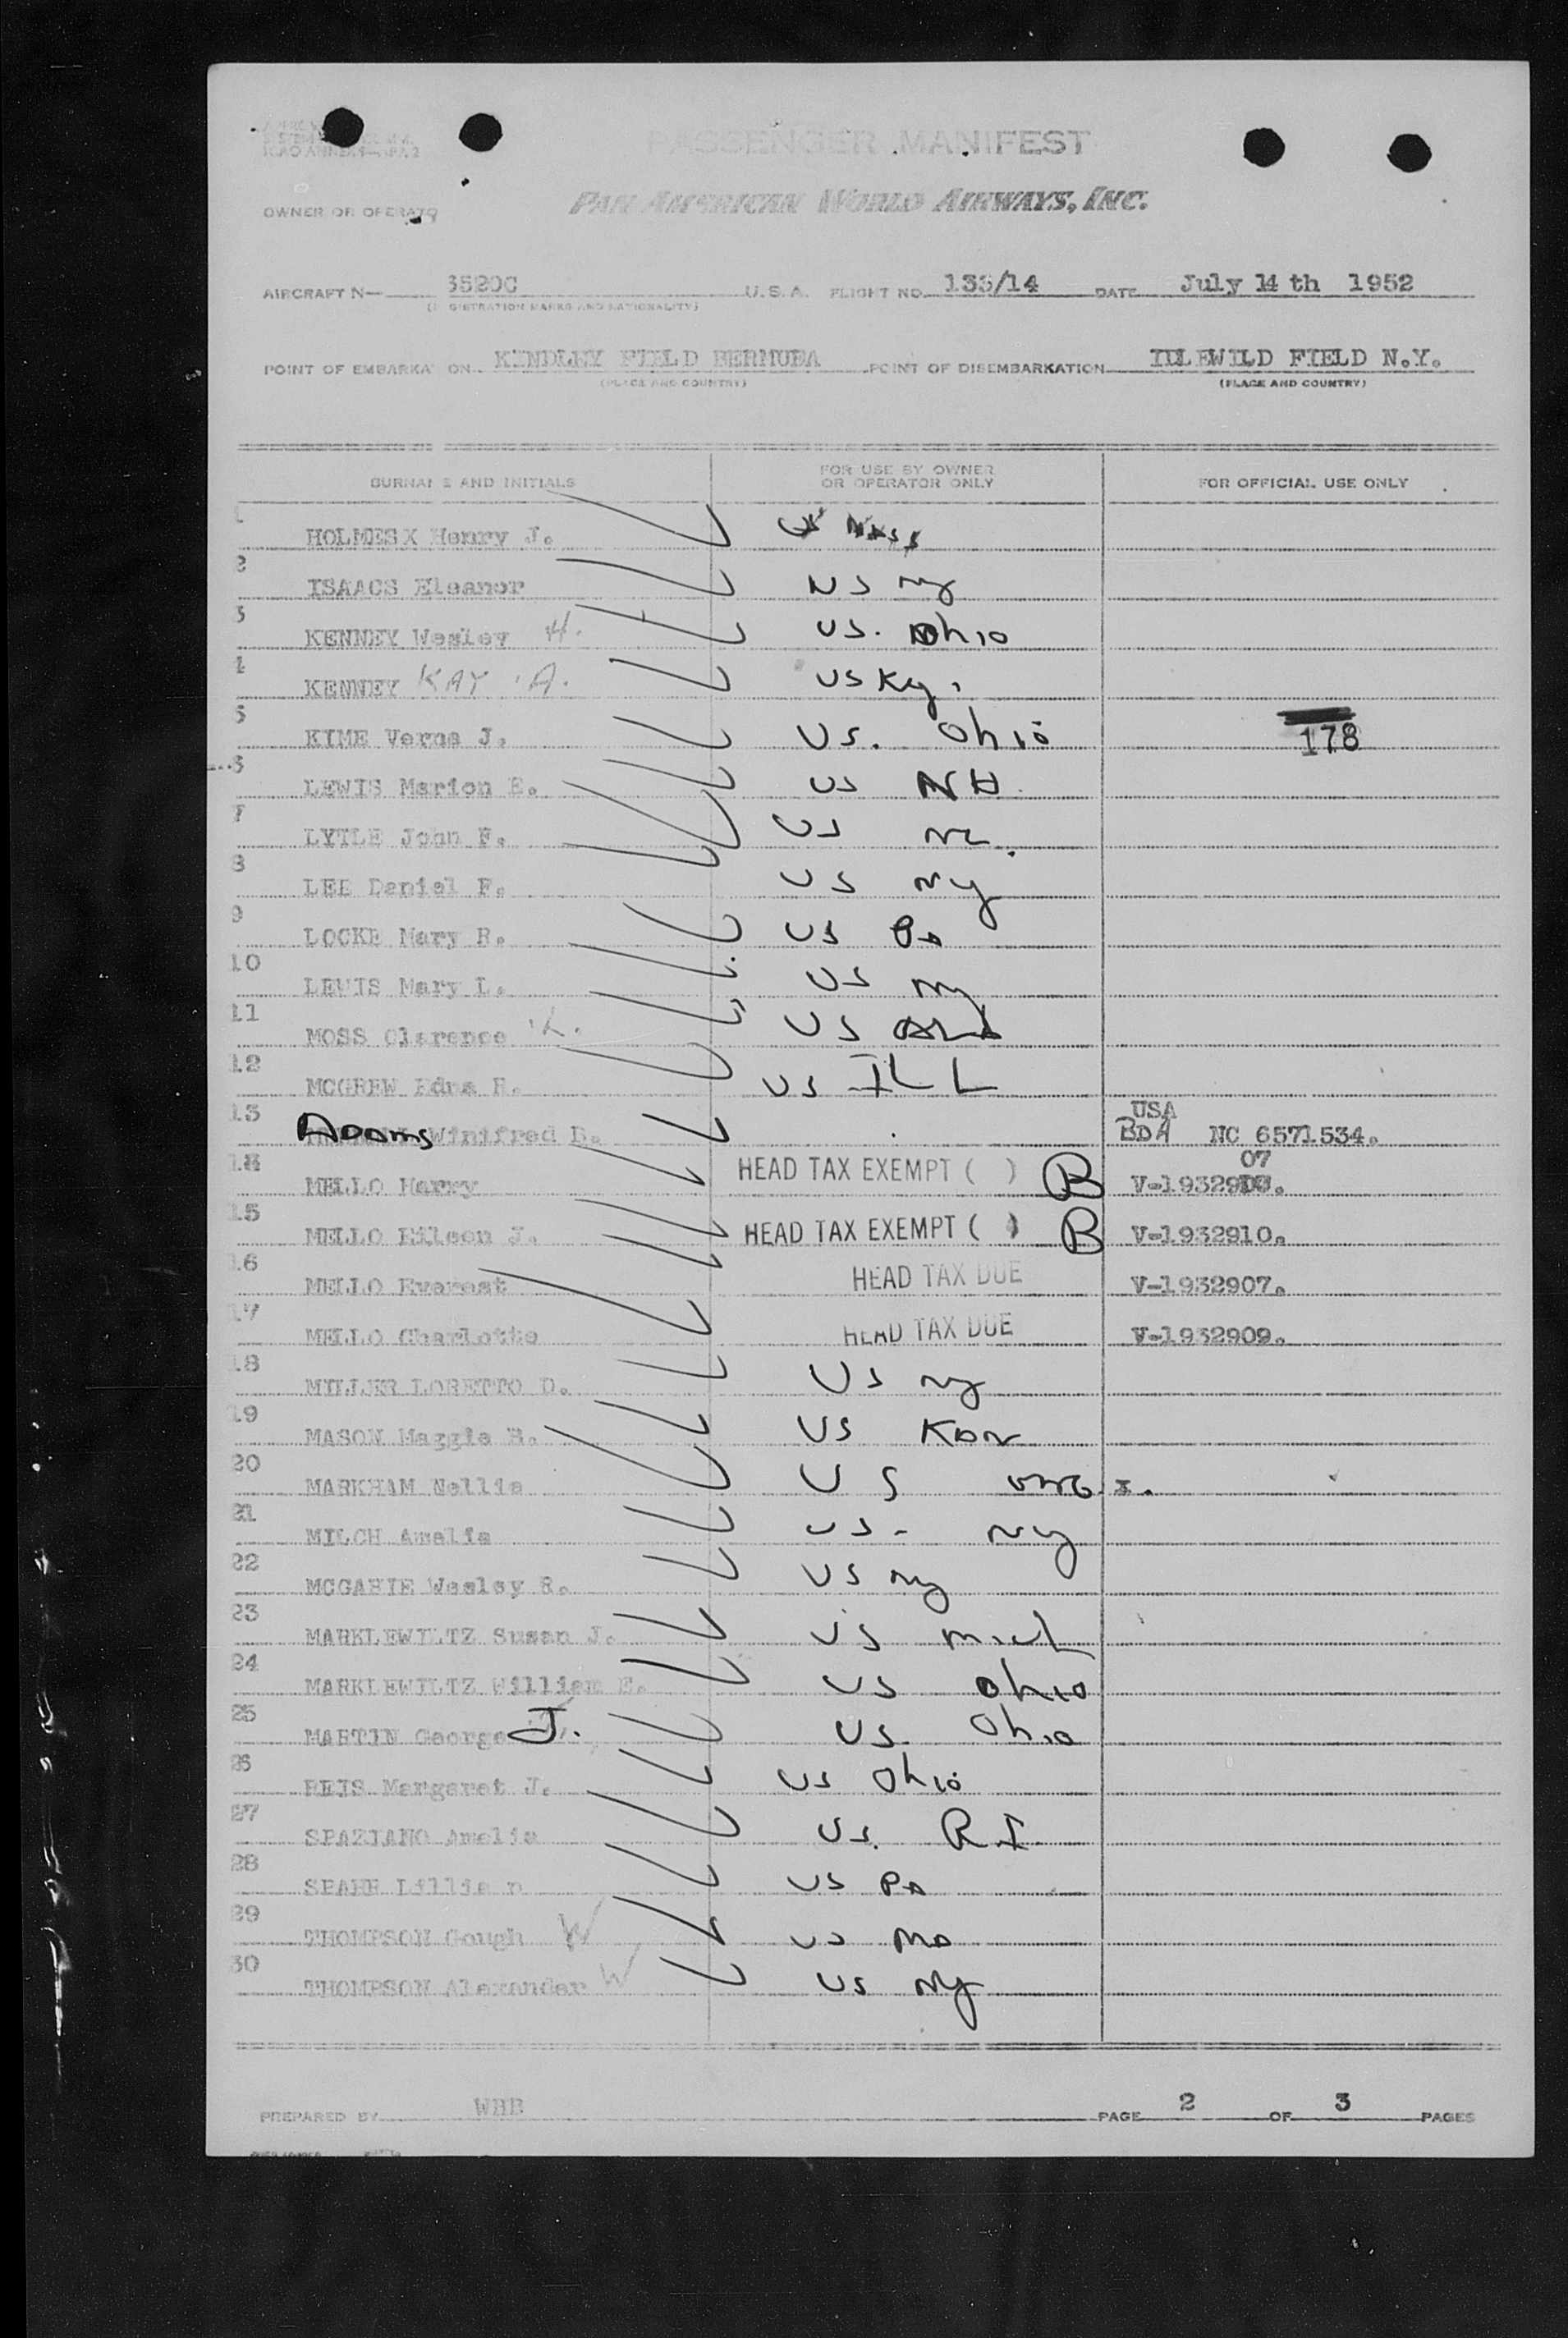 PASSENGER MANIFEST
PAN AMERICAN WORLD AIRWAYS, INC.
OWNER OR OPERATO
AIRCRAFT N— 3520C U.S.A. FLIGHT NO. 133/14 DATE July 14 th 1952
POINT OF EMBARKA ON KINDLEY FIELD BERMUDA POINT OF DISEMBARKATION IDLEWILD FIELD N.Y.
(PLACE AND COUNTRY) (PLACE AND COUNTRY)
SURNAME AND INITIALS FOR USE BY OWNER OR OPERATOR ONLY FOR OFFICIAL USE ONLY
1 HOLMESX Henry J. US Mass
2 ISAACS Eleanor US NY
3 KENNEY Wesley H. US. Ohio
4 KENNEY KAY A. US Ky.
5 KIME Verna J. US. Ohio 178
6 LEWIS Marion E. US NH
7 LYTLE John F. US NC.
8 LEE Daniel F. US NY
9 LOCKE Mary R. US Pa
10 LEWIS Mary L. US NY
11 MOSS Clarence K. US
12 MCGREW Edna US ILL
13 Adams Winifred B. USA BDA NC 6571534.
14 MELLO Harry HEAD TAX EXEMPT ( ) B 07 V-19329
15 MELLO Eileen J. HEAD TAX EXEMPT ( ) B V-1932910.
16 MELLO Everest HEAD TAX DUE V-1932907.
17 MELLO Charlotte HEAD TAX DUE V-1932909.
18 MILLER LORETTO D. US NY
19 MASON Maggie B. US Kan
20 MARKHAM Nellie U S
21 MILCH Amelia US- NY
22 MCGARIE Wesley R. US NY
23 MARKLEWILTZ Susan J. US Mich
24 MARKLEWILTZ William E. US Ohio
25 MARTIN George J. US. Ohio
26 REIS Margaret J. US Ohio
27 SPAZIANO Amelia US. RI
28 SPAHR Lillia n US Pa
29 THOMPSON Gough W US Mo
30 THOMPSON Alexander W US NY
PREPARED BY WBB PAGE 2 OF 3 PAGES